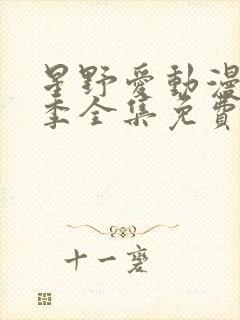 星野愛動漫
季全集免費
十一裹